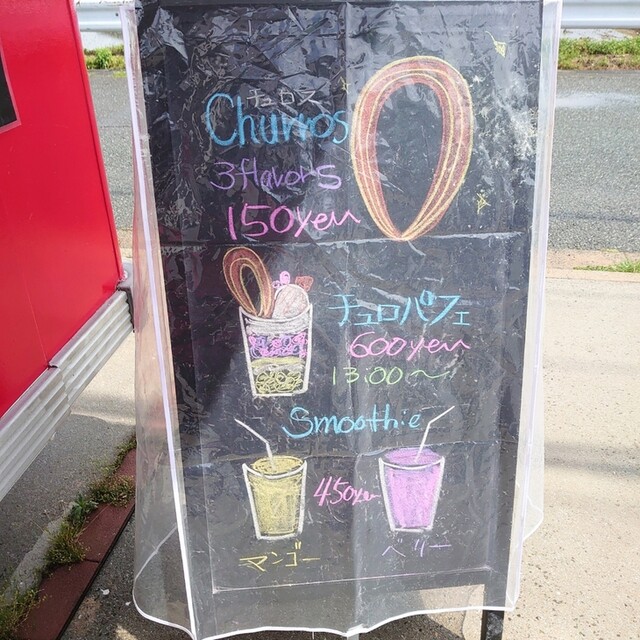 チュロス
Churros
3flavors
150yen
チュロパフェ
600yen
13:00〜
Smoothie
450yen
マンゴー
ベリー